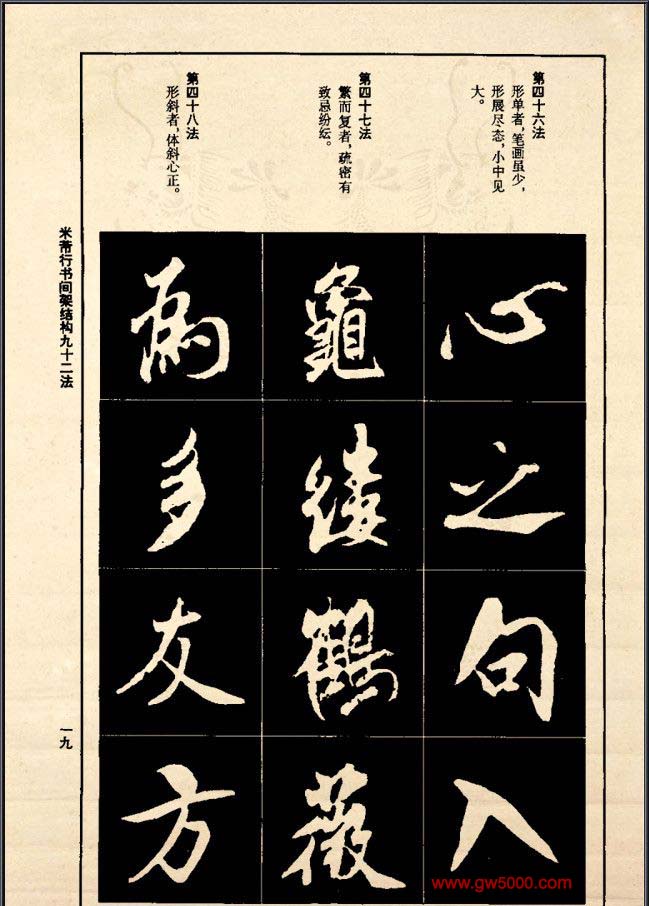 第四十六法
形单者，笔画虽少，
形展尽态，小中见
大。
心之句入
第四十七法
繁而复者，疏密有
致忌纷纭。
龜縷鶴薇
第四十八法
形斜者，体斜心正。
為多友方
米芾行书间架结构九十二法
一九
www.gw5000.com